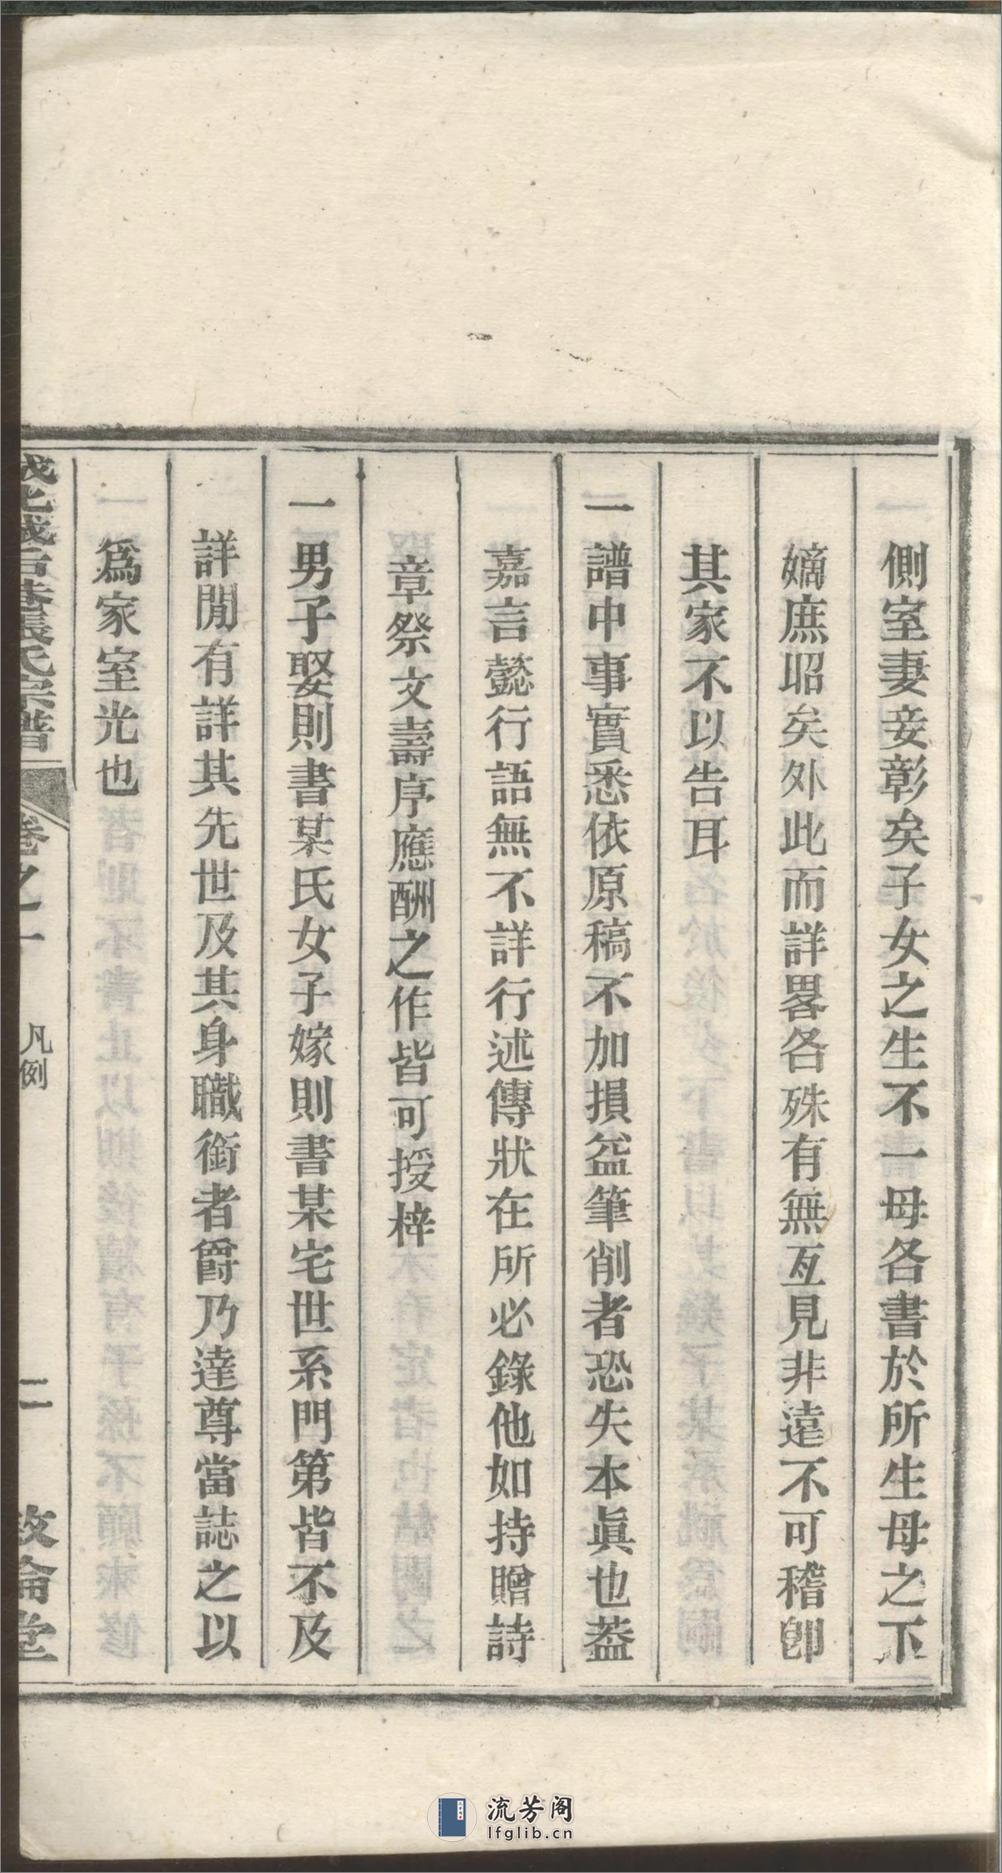 側室妻妾彰矣子女之生不一母各書於所生母之下
嫡庶昭矣外此而詳畧各殊有無互見非遠不可稽卽
其家不以告耳
一譜中事實悉依原稿不加損益筆削者恐失本眞也葢
嘉言懿行語無不詳行述傳狀在所必錄他如持贈詩
章祭文壽序應酬之作皆可授梓
一男子娶則書某氏女子嫁則書某宅世系門第皆不及
詳閒有詳其先世及其身職銜者爵乃達尊當誌之以
爲家室光也
巷張氏宗譜
卷之一
凡例
二
敦倫堂
流芳阁
lfglib.cn